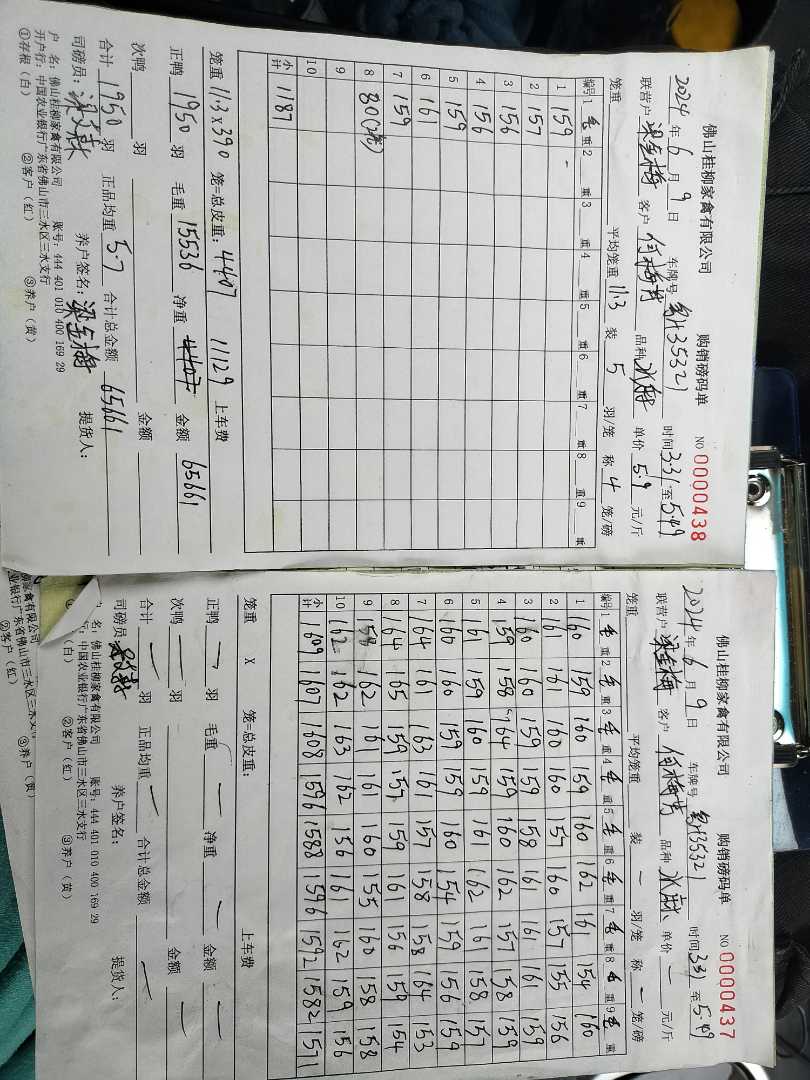 佛山桂柳家禽有限公司 购销磅码单
NO 0000438
2024年6月9日 车牌号 粤H35321 时间3.31至5.49
联营户 梁金梅 客户 品种 单价5.9元/斤
笼重 平均笼重11.3 装5羽/笼 称4笼/磅
编号 重1毛 重2 重3 重4 重5 重6 重7 重8 重9 重
1 159
2 157
3 156
4 156
5 159
6 161
7 159
8 80(2笼)
9
10
小计 1187
笼重11.3x390笼=总皮重:4407 11129 上车费
正鸭1950羽 毛重15536 净重 4407 金额65661
次鸭 羽 金额
合计1950羽 正品均重5.7 合计总金额65661
司磅员: 养户签名:梁金梅 提货人:
户 名:佛山桂柳家禽有限公司 账号:444 401 010 400 169 29
开户行:中国农业银行广东省佛山市三水区三水支行
①存根(白) ②客户(红) ③养户(黄)
佛山桂柳家禽有限公司 购销磅码单
NO 0000437
2024年6月9日 车牌号 粤H35321 时间3.31至5.49
联营户 梁金梅 客户 品种 单价 — 元/斤
笼重 平均笼重 装 — 羽/笼 称 — 笼/磅
编号 重1毛 重2毛 重3毛 重4毛 重5毛 重6毛 重7毛 重8毛 重9毛 重
1 160 159 160 159 160 162 161 154 160
2 161 161 160 160 157 160 157 155 156
3 160 160 159 159 158 161 161 161 159
4 159 158 164 159 160 162 157 158 159
5 161 159 160 159 161 162 161 158 157
6 160 160 159 159 160 154 159 156 159
7 164 161 163 161 157 158 158 164 153
8 164 165 159 159 159 161 156 159 154
9 158 162 161 161 160 155 160 158 158
10 162 162 163 162 156 161 162 159 156
小计 1609 1607 1608 1596 1588 1596 1592 1582 1571
笼重 X 笼=总皮重: 上车费
正鸭 — 羽 毛重 — 净重 — 金额 —
次鸭 — 羽 金额 —
合计 — 羽 正品均重 — 合计总金额 —
司磅员 养户签名: 提货人:
名:佛山桂柳家禽有限公司 账号:444 401 010 400 169 29
行:中国农业银行广东省佛山市三水区三水支行
(白) ②客户(红) ③养户(黄)
家禽有限公司
业银行广东省佛山市三水区三水支
②客户(红) ③养户(黄)